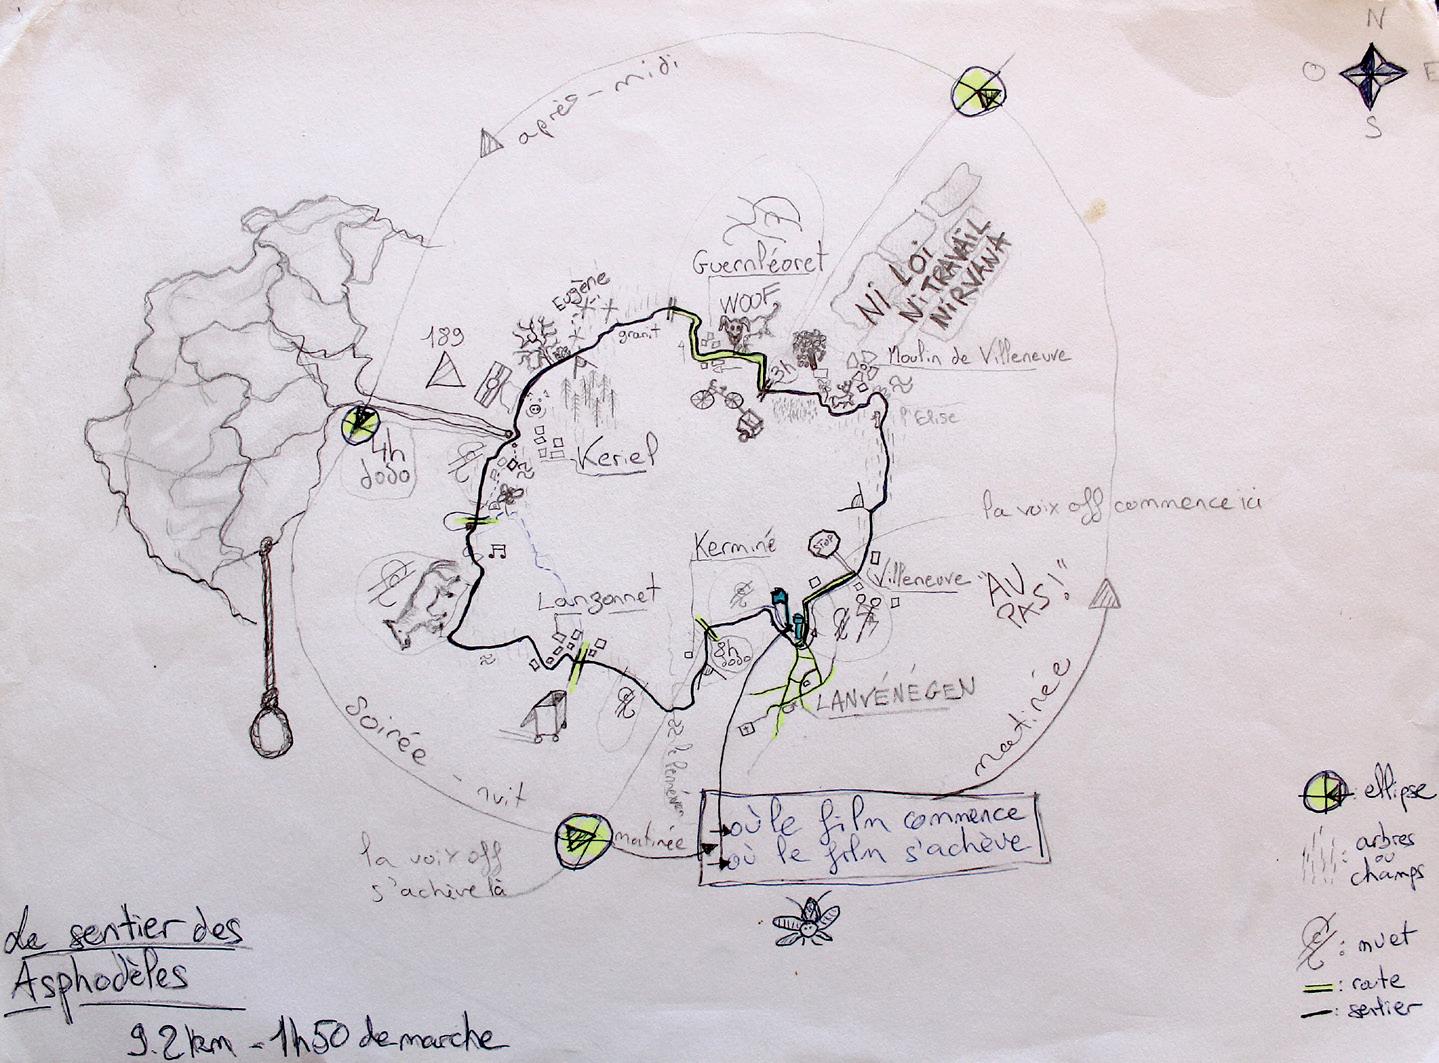 N
O
E
S
après-midi
NI LOI
NI TRAVAIL
NIRVANA
Guernléoret
WOOF
Eugène
granit
189
3h
Moulin de Villeneuve
l'Elise
Keriel
4h
dodo
la voix off commence ici
STOP
Kerminé
Villeneuve
"AU
PAS!"
Lanzonnet
8h
dodo
LANVÉNÉGEN
matinée
Soirée - nuit
matinée
où le film commence
où le film s'achève
la voix off
s'achève là
: ellipse
: arbres
ou
champs
: muet
: route
: sentier
Le sentier des
Asphodèles
9.2 km - 1h50 de marche